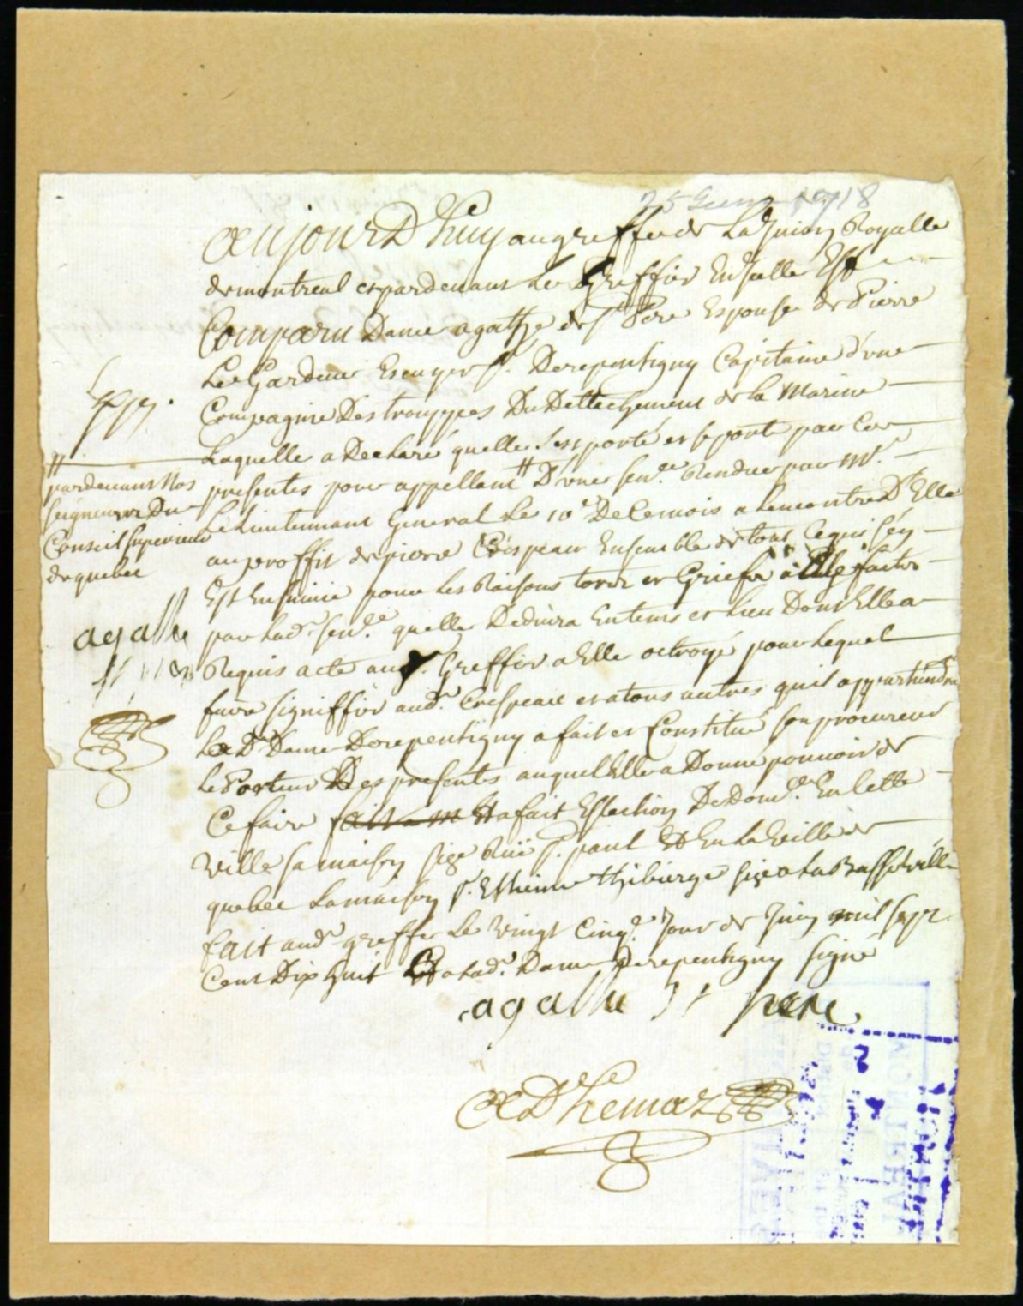 25 Juin 1718
Aujourd'huy au greffe de La Jurion Royalle
de montreal et pardevant Le Greffier En Icelle Est
Comparu Dame agathe de St Pere Espouse de Pierre
Le Gardeur Escuyer Sr. Derepentigny Capitaine d'une
Compagnie Des trouppes Du Dettachement de la Marine
Laquelle a Declaré quelle s'est porté et se porte par Ces
presentes pour appellant # D'une Sence. Rendue par Mr.
Le Lieutennant General Le 10e De Ce mois a Lencontre D'Elle
au proffit de pierre Crespeau Ensemble de tout Ce qui s'en
Est Ensuivi pour les Raisons torts et Griefs à Elle faits
par Lad. Sence. quelle Deduira En tems et Lieu Dont Elle a
Requis acte aud. Greffier a Elle octroyé pour Lequel
faire signiffier aud. Crespeau et a tous autres quil appartiendra
La De. Dame Derepentigny a fait et Constitué Son procureur
le Porteur Des presentes auquel Elle a Donné pouvoir de
Ce faire Et a fait Eslection De Dom. En Cette
Ville Sa maison Size Rüe St. paul Et En La Ville de
quebec La maison Sr. Estienne thibierge size a La Basse Ville
fait aud. greffe Le Vingt Cinqe. Jour de Juin mil sept
Cent Dix huit Et a Lad. Dame Derepentigny signé
agathe st pere
ADhemar
#
pardevant Nos
seigneurs Du
Conseil superieur
de quebec
agathe